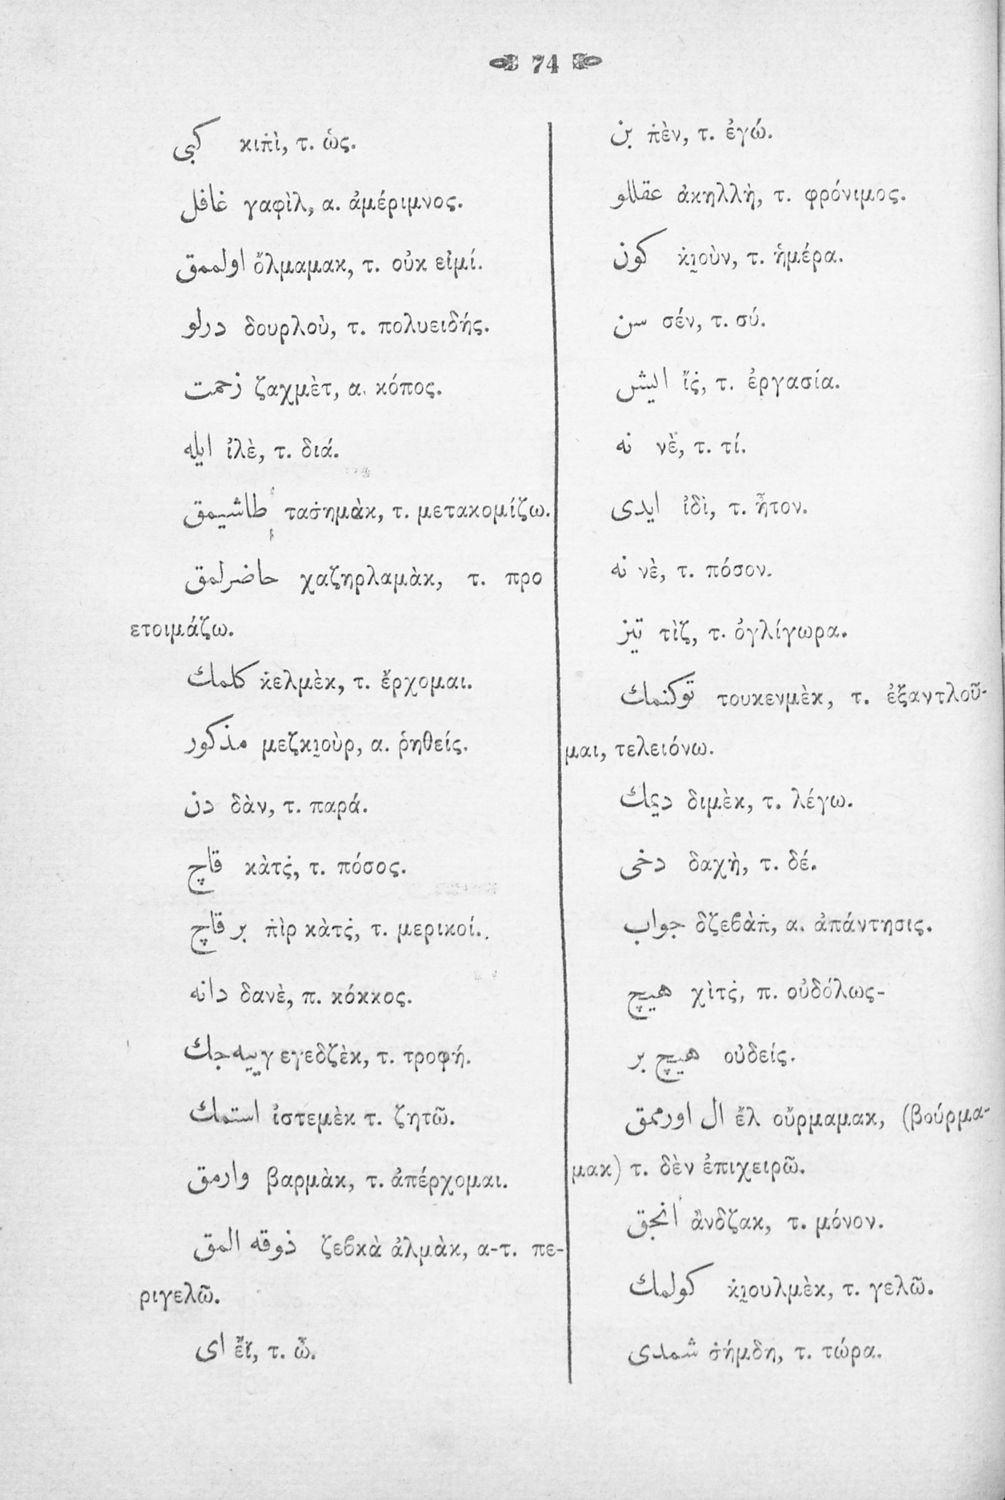 74
كبی κιπ̇ὶ, τ. ὡς.
غافل γαφὶλ, α. ἀμέριμνος.
اولممق ὄλμαμακ, τ. οὐκ εἰμί.
درلو δουρλοὺ, τ. πολυειδής.
زحمت ζαχμὲτ, α. κόπος.
ايله ἰλὲ, τ. διά.
طاشيمق τασ̇ημὰκ, τ. μετακομίζω.
حاضرلمق χαζηρλαμὰκ, τ. προ
ετοιμάζω.
كلمك κ̇ελμὲκ, τ. ἔρχομαι.
مذكور μεζκι̯οὺρ, α. ῥηθείς.
دن δὰν, τ. παρά.
قاچ κὰτς̇, τ. πόσος.
بر قاچ π̇ὶρ κὰτς̇, τ. μερικοί.
دانه δανὲ, π. κόκκος.
ييه‌جك γεγεδζὲκ, τ. τροφή.
استمك ἰστεμὲκ τ. ζητῶ.
وارمق βαρμὰκ, τ. ἀπέρχομαι.
ذوقه المق ζεβκὰ ἀλμὰκ, α-τ. πε-
ριγελῶ.
ای ἔϊ, τ. ὦ.
بن π̇ὲν, τ. ἐγώ.
عقللو ἀκηλλὴ, τ. φρόνιμος.
كون κ̇ι̯οὺν, τ. ἡμέρα.
سن σέν, τ. σύ.
ايش ἴς̇, τ. ἐργασία.
نه νὲ, τ. τί.
ايدی ἰδὶ, τ. ἦτον.
نه νὲ, τ. πόσον.
تيز τὶζ, τ. ὀγλίγωρα.
توكنمك τουκενμὲκ, τ. ἐξαντλοῦ-
μαι, τελειόνω.
ديمك διμὲκ, τ. λέγω.
دخی δαχὴ, τ. δέ.
جواب δζεβὰπ̇, α. ἀπάντησις.
هيچ χὶτς̇, π. οὐδόλως-
هيچ بر οὐδείς.
ال اورممق ἒλ οὔρμαμακ, (βούρμα-
μακ) τ. δὲν ἐπιχειρῶ.
انجق ἄνδζακ, τ. μόνον.
كولمك κ̇ι̯ουλμὲκ, τ. γελῶ.
شمدی σ̇ήμδη, τ. τώρα.